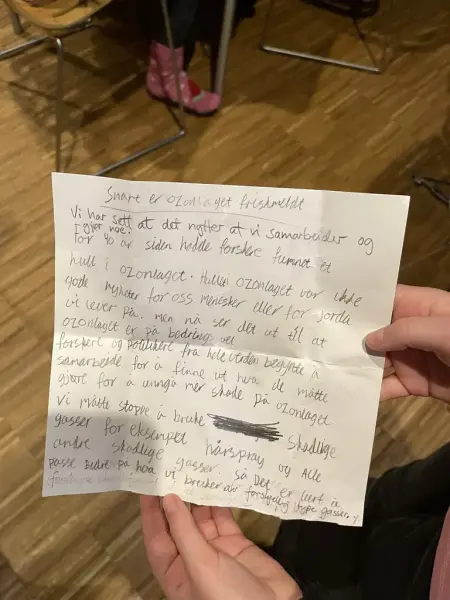 Snart er ozonlaget friskmeldt
Vi har sett at det nytter at vi samarbeider og
gjør noe!
For 40 år siden hadde forskere funnet et
hull i ozonlaget. Hullei ozonlaget var ikke
gode nyheter for oss menesker eller for jorda
vi lever på. men nå ser det ut til at
ozonlaget er på bedrings vei
forskere og politikere fra hele verden begynte å
samarbeide for å finne ut hva de måtte
gjøre for å unngå mer skade på ozonlaget
Vi måtte stoppe å bruke skadlige
gasser for eksempel hårspray og Alle
andre skadlige gasser. så Det er lurt å
passe Bedre på hva vi bruker av forskjellig type gasser.